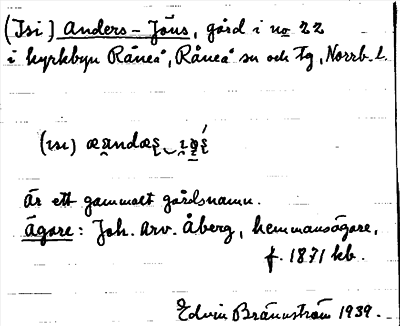 (Isi) Anders-Jöns, gård i no 22
i kyrkbyn Råneå, Råneå sn och tg, Norrb. l.
(ɪsɪ)
Är ett gammalt gårdsnamn.
Ägare: Joh. Arv. Åberg, hemmansägare,
f. 1871 kb.
Edvin Brännström 1939.